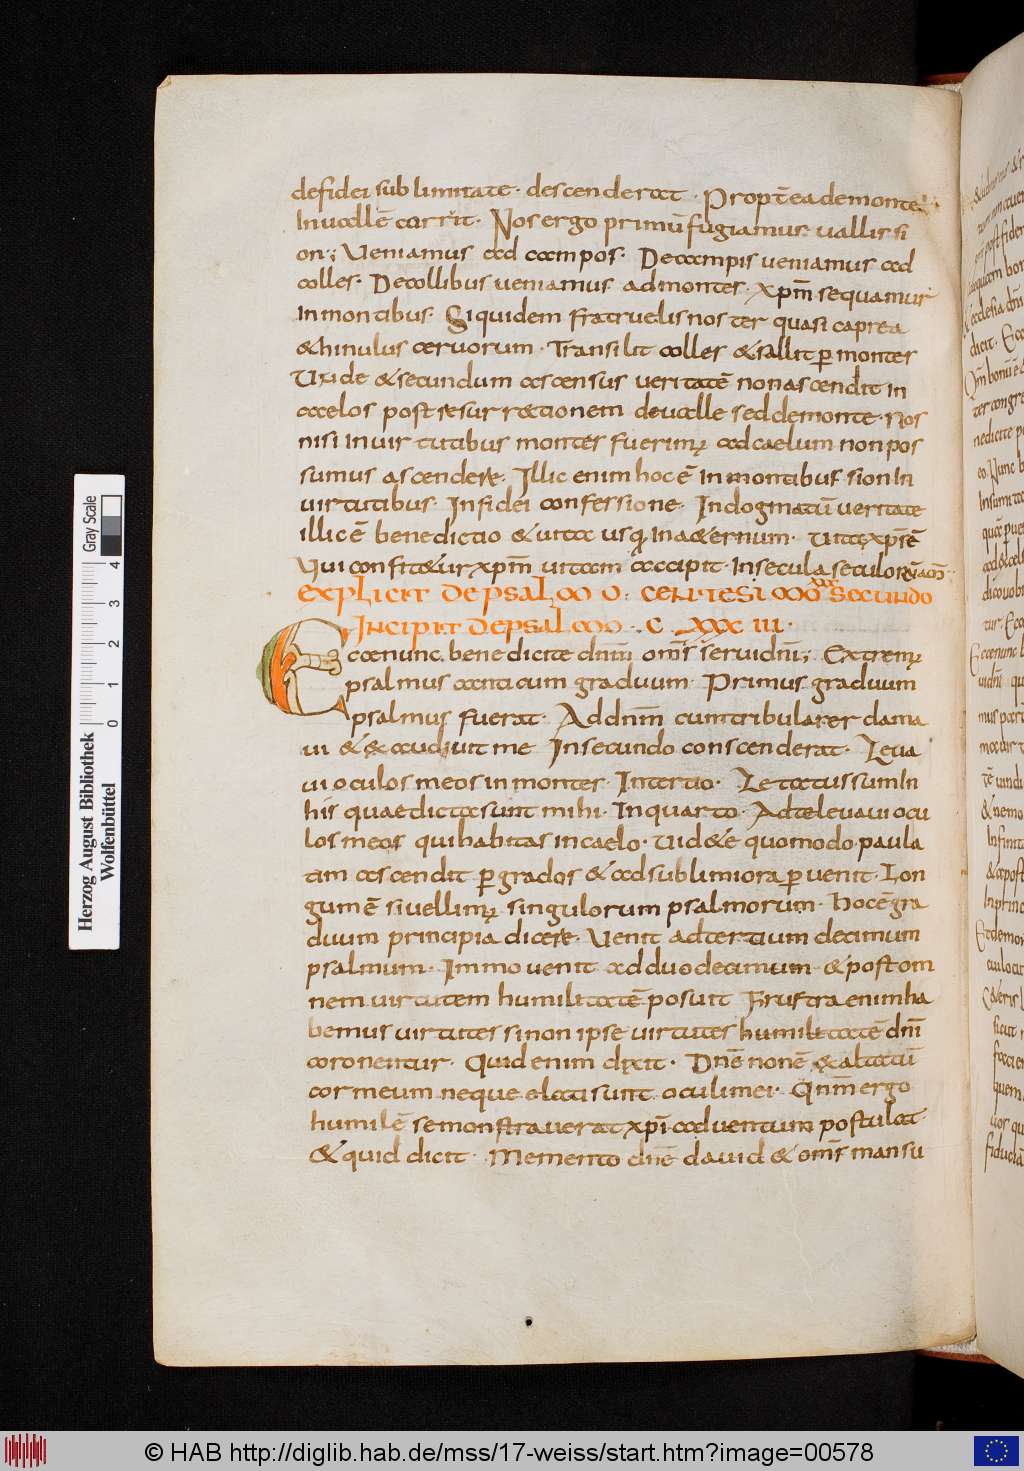 de fidei sublimitate. descenderat. Propt̄ea de monte
In uallē currit. Nos ergo primū fugiamus uallis si
on; Ueniamus ad campos. De campis ueniamus ad
colles. De collibus ueniamus ad montes. xp̄m sequamur
In montibus. Siquidem fratruelis noster quasi caprea
& hinulus ceruorum. Transilit colles & sallit p̱ montes
Unde & secundum ascensus ueritatē non ascendit in
caelos post resurrectionem de ualle sed de monte. Nos
nisi In uirtutibus montes fuerimꝰ ad caelum non pos
sumus ascendere. Illic enim hoc ē In montibus sion In
uirtutibus. In fidei confessione. In dogmatū ueritate
illic ē benedictio & uita usq; In aeternum. Uita xp̄s ē
Qui confitetur xp̄m uitam accipit. In secula seculorū am̄
explicit de psalmo. centesimo xxx secundo
Incipit de psalmo. C XXX III.
Ecce nunc benedicite dn̄m om̄s serui dn̄i; Extremꝰ
psalmus canticum graduum. Primus graduum
psalmus fuerat. Ad dn̄m cum tribularer clama
ui & exaudiuit me In secundo conscenderat. Leua
ui oculos meos in montes. In tertio. Letatus sum In
his quae dicta sunt mihi. In quarto. Ad te leuaui ocu
los meos qui habitas in caelo. Uidete quomodo paula
tim ascendit p̱ grados & ad sublimiora p̱uenit. Lon
gum ē si uellimꝰ singulorum psalmorum. hoc ē gra
duum principia dicere. Uenit ad tertium decimum
psalmum. Immo uenit ad duodecimum & post om
nem uirtutem humilitatē posuit Frustra enim ha
bemus uirtutes si non ipse uirtutes humilitatē dn̄i
coronentur. Quid enim dixit. Dn̄e non ē exaltatū
cor meum neque elati sunt oculi mei. Qn̄m ergo
humilē se monstrauerat xp̄i aduentum postulat
& quid dicit. Memento dn̄e dauid & om̄s mansu
Herzog August Bibliothek
Wolfenbüttel
Gray Scale
0 1 2 3 4
© HAB http://diglib.hab.de/mss/17-weiss/start.htm?image=00578